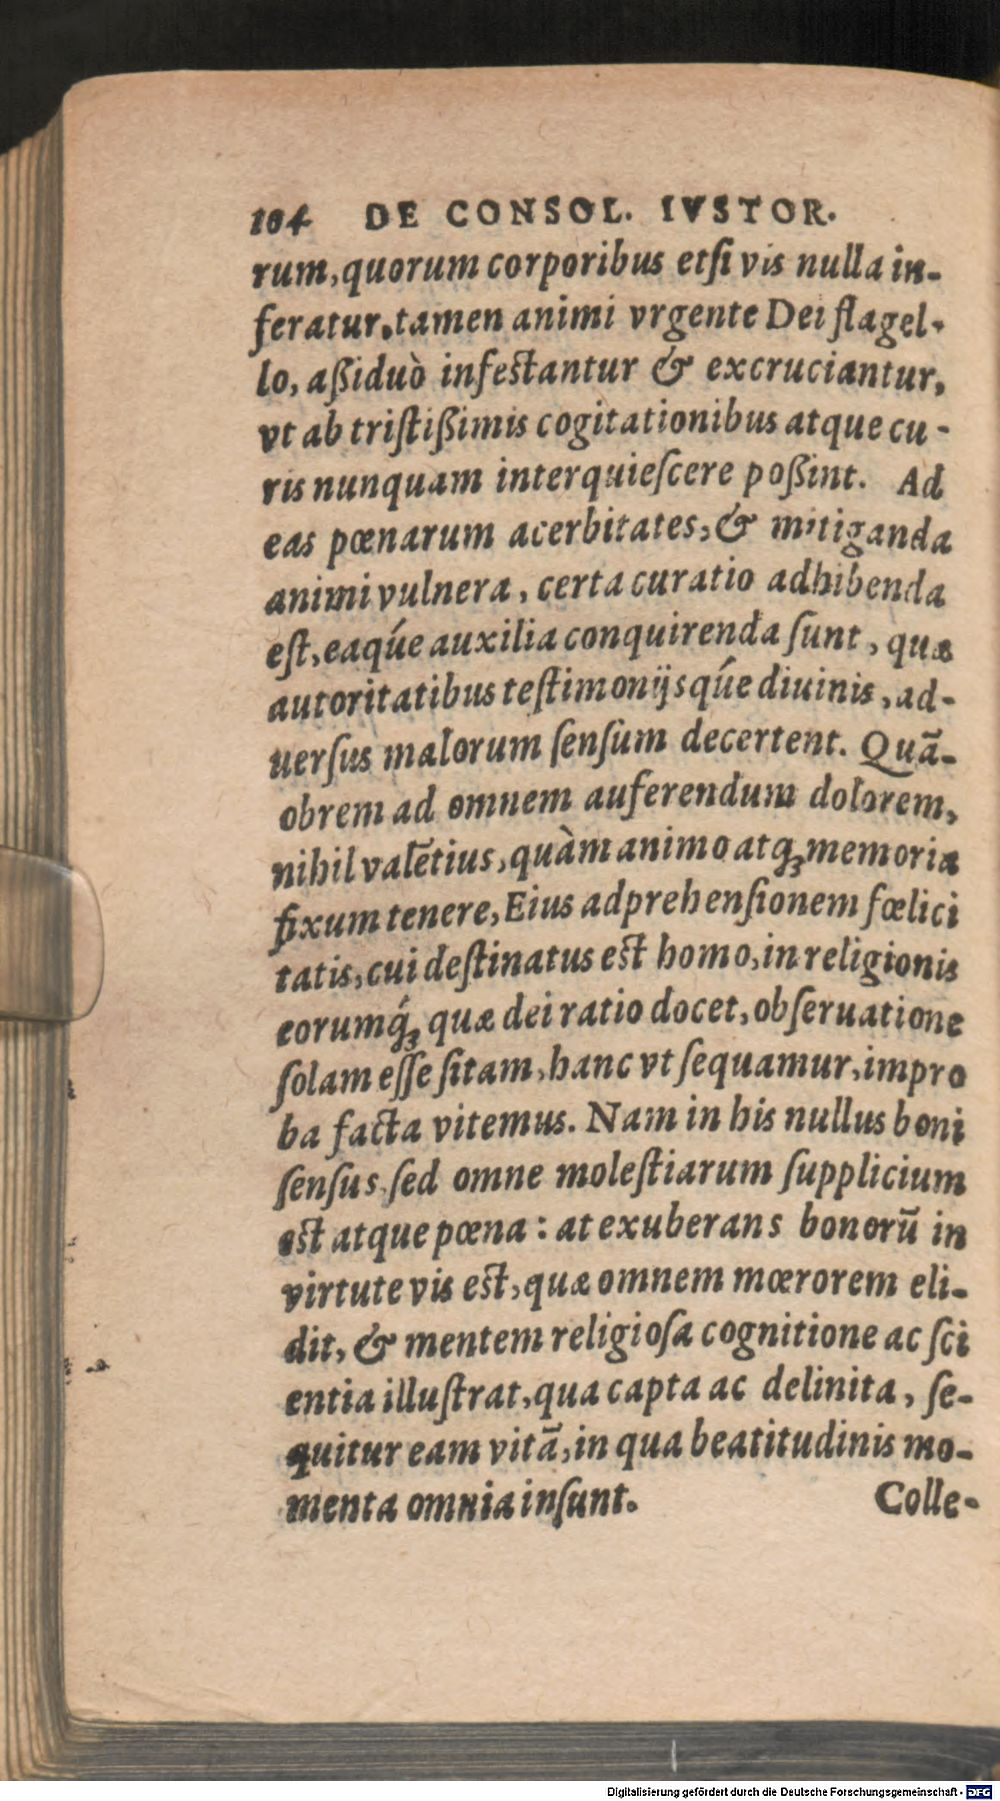 104 DE CONSOL. IVSTOR.
rum, quorum corporibus etſi vis nulla in-
feratur, tamen animi vrgente Dei flagel-
lo, aßiduò infeſtantur & excruciantur,
vt ab triſtißimis cogitationibus atque cu-
ris nunquam interquieſcere poßint. Ad
eas pœnarum acerbitates, & mitiganda
animi vulnera, certa curatio adhibenda
eſt, eaqúe auxilia conquirenda ſunt, quæ
autoritatibus teſtimonijsqúe diuinis, ad-
uerſus malorum ſenſum decertent. Quā-
obrem ad omnem auferendum dolorem,
nihil valētius, quàm animo atqꝫ memoria
fixum tenere, Eius adprehenſionem fœlici
tatis, cui deſtinatus eſt homo, in religionis
eorumq́ꝫ quæ dei ratio docet, obſeruatione
ſolam eſſe ſitam, hanc vt ſequamur, impro
ba facta vitemus. Nam in his nullus boni
ſenſus, ſed omne moleſtiarum ſupplicium
eſt atque pœna: at exuberans bonorū in
virtute vis eſt, quæ omnem mœrorem eli-
dit, & mentem religioſa cognitione ac ſci
entia illuſtrat, qua capta ac delinita, ſe-
quitur eam vitā, in qua beatitudinis mo-
menta omnia inſunt. Colle-
Digitalisierung gefördert durch die Deutsche Forschungsgemeinschaft - DFG